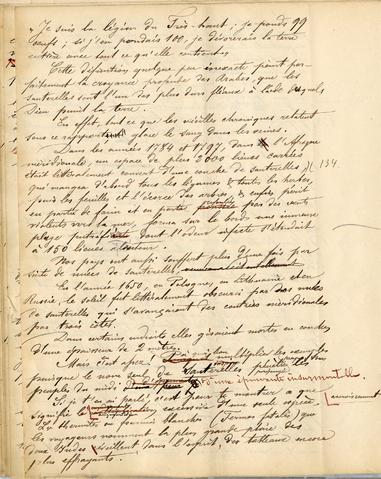 « Je suis la légion du Très-haut ; je ponds 99
œufs ; si j'en pondais 100, je dévorerais la terre
entière avec tout ce qu'elle contient. »
Cette définition, quelque peu inexacte peint par-
faitement la croyance profonde des Arabes, que les
sauterelles sont l'un des plus durs fléaux à l'aide desquels
Dieu punit la terre.
En effet, tout ce que les vieilles chroniques relatent
sous ce rapport glace le sang dans les veines.
Dans les années 1784 et 1797, dans l'Afrique
méridionale, un espace de plus 2000 lieues carrées
était littéralement couvert d'une couche de sauterelles 134
qui mangea d'abord tous les légumes & toutes les herbes,
puis les feuilles et l'écorce des arbres, & enfin périt
en partie de faim et en partie par des vents
violents vers la mer, forma sur le bord une immense
plage dont l'odeur infecte s'étendait
à 150 lieues
Nos pays ont aussi souffert plus d'une fois par
suite de nuées de sauterelles,
En l'année 1650, en Pologne, en Lithuanie et en
Russie, le soleil fut littéralement obscurci par des nuées
de sauterelles qui s'avançaient des contrées méridionales
par trois côtés.
Dans certains endroits elles gisaient mortes en couches
d'une épaisseur de
Mais c'est assez !
puisque le nom seul de Sauterelles les
peuples du midi d'une épouvante insurmontable.
Si je t'en ai parlé, c'est pour te montrer à
signifie excessive d'une seule espèce. l'accroissement
La thermite ou fourmis blanches (Termes fatale) que
les voyageurs nomment la plus grande plaie des
deux Indes éveillent dans l'esprit, des tableaux encore
plus effrayants.